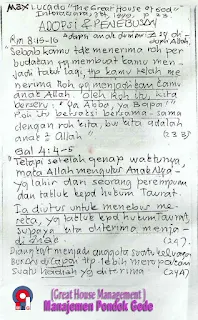 MBX LUCADO "The GREAT House of God"
Interaksara, Jkt, 1999. P. 23
ADOPSI & PENEBUSAN
Rm 8:15-16
"Sebab kamu tdk menerima roh per
budakan yg membuat kamu men-
jadi takut lagi, ttp kamu telah me
nerima Roh yg menjadikan kamu
anak Allah. Oleh Roh itu, kita
berseru: "ya Abba, ya Bapa!"
Roh itu bersaksi bersama-sama
dengan roh kita, bw kita adalah
anak² Allah" (23B)
Gal 4:4-5
"Tetapi setelah genap waktunya,
maka Allah mengutus AnakNya
yg lahir dari seorang perempuan
dan takluk kepd hukum Taurat.
Ia diutus untuk menebus me-
reka, yg takluk kpd hukum Taurat,
supaya kita diterima menja-
di anak" (24).
menjadi anggota suatu keluarga
Bukan dicapai ttp lebih merupakan
suatu hadiah yg diterima (24A)
(Great House Management)
Manajemen Pondok Gede